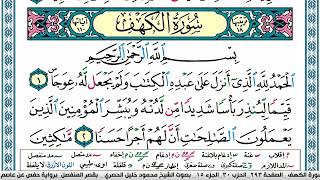 سُورَةُ الْكَهْفِ
بِسْمِ اللَّهِ الرَّحْمَٰنِ الرَّحِيمِ
الْحَمْدُ لِلَّهِ الَّذِي أَنزَلَ عَلَىٰ عَبْدِهِ الْكِتَابَ وَلَمْ يَجْعَل لَّهُ عِوَجًا ١
قَيِّمًا لِّيُنذِرَ بَأْسًا شَدِيدًا مِّن لَّدُنْهُ وَيُبَشِّرَ الْمُؤْمِنِينَ الَّذِينَ
يَعْمَلُونَ الصَّالِحَاتِ أَنَّ لَهُمْ أَجْرًا حَسَنًا ٢ مَّاكِثِينَ
سورة الكهف الصفحة ٢٩٣ الحزب ٣٠ الجزء ١٥ بصوت الشيخ محمود خليل الحصري بقصر المنفصل برواية حفص عن عاصم